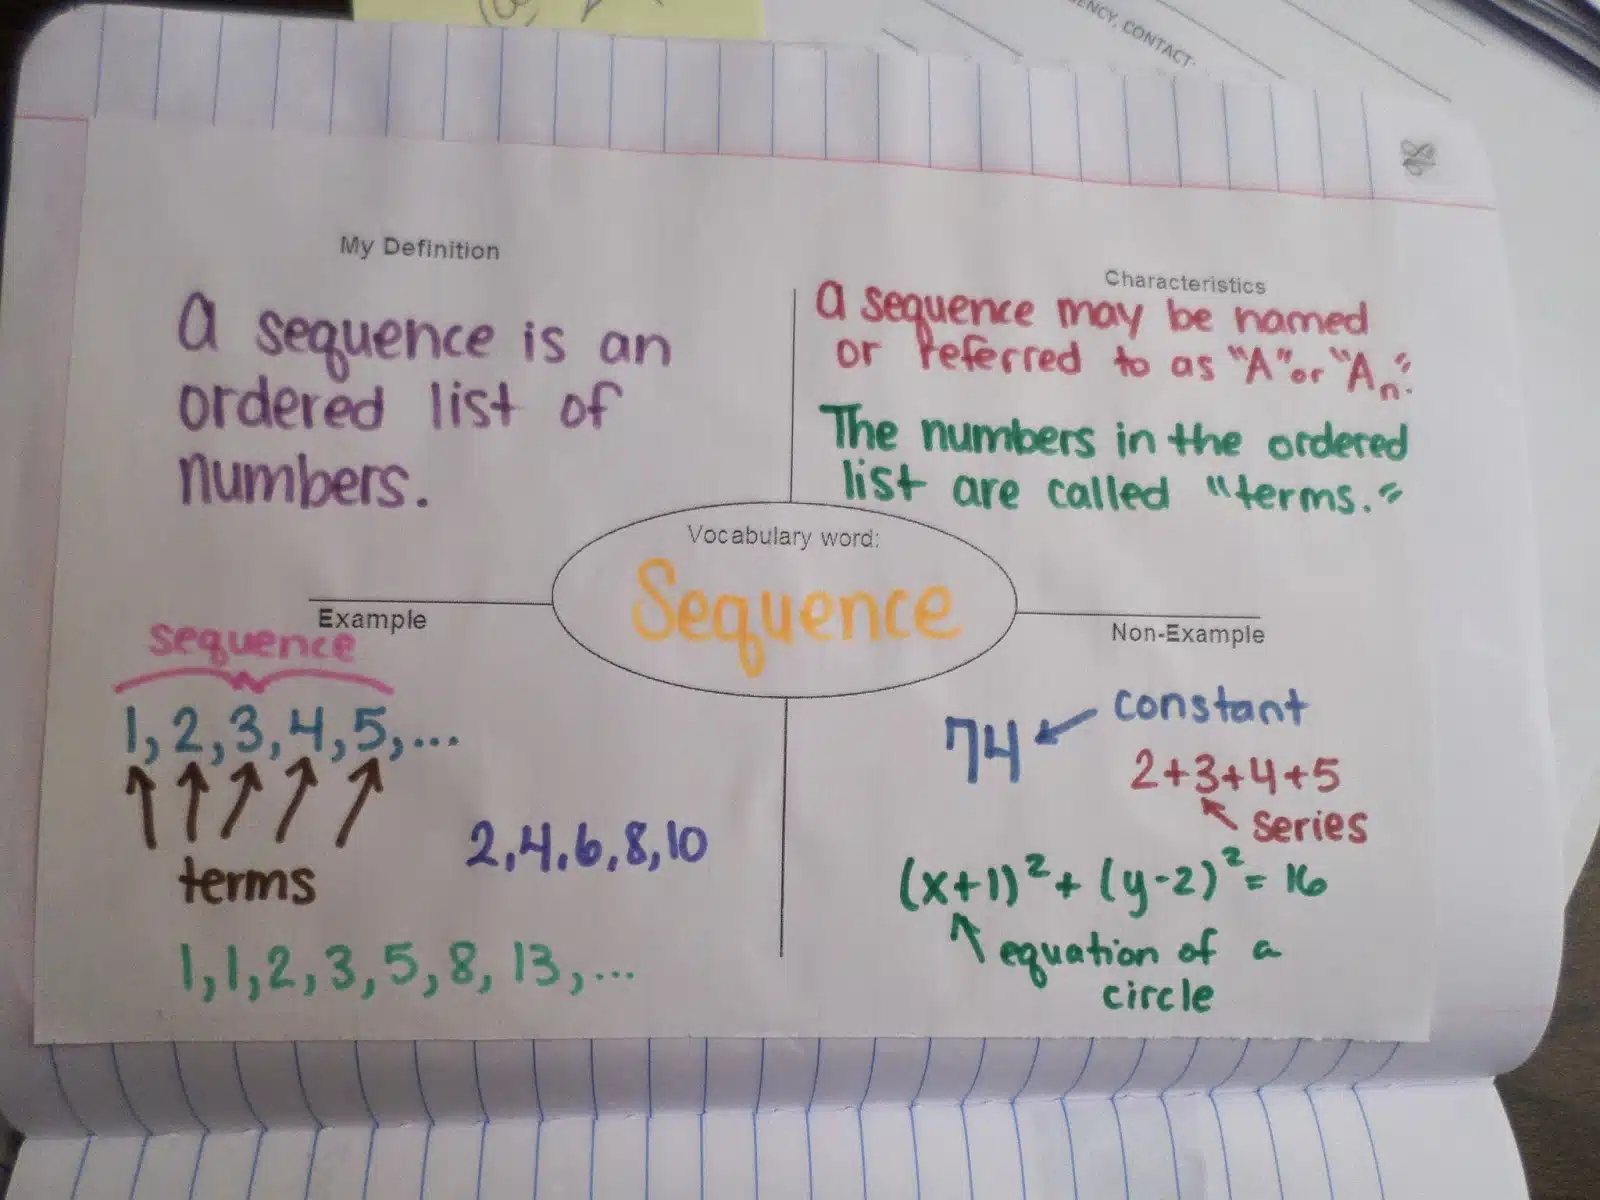 ENCY, CONTACT
My Definition
a sequence is an
ordered list of
numbers.
Characteristics
a sequence may be named
or referred to as "A" or "An".
The numbers in the ordered
list are called "terms."
Vocabulary word:
Sequence
Example
sequence
1, 2, 3, 4, 5, ...
terms
2, 4, 6, 8, 10
1, 1, 2, 3, 5, 8, 13, ...
Non-Example
74
constant
2+3+4+5
series
(x+1)² + (y-2)² = 16
equation of a
circle